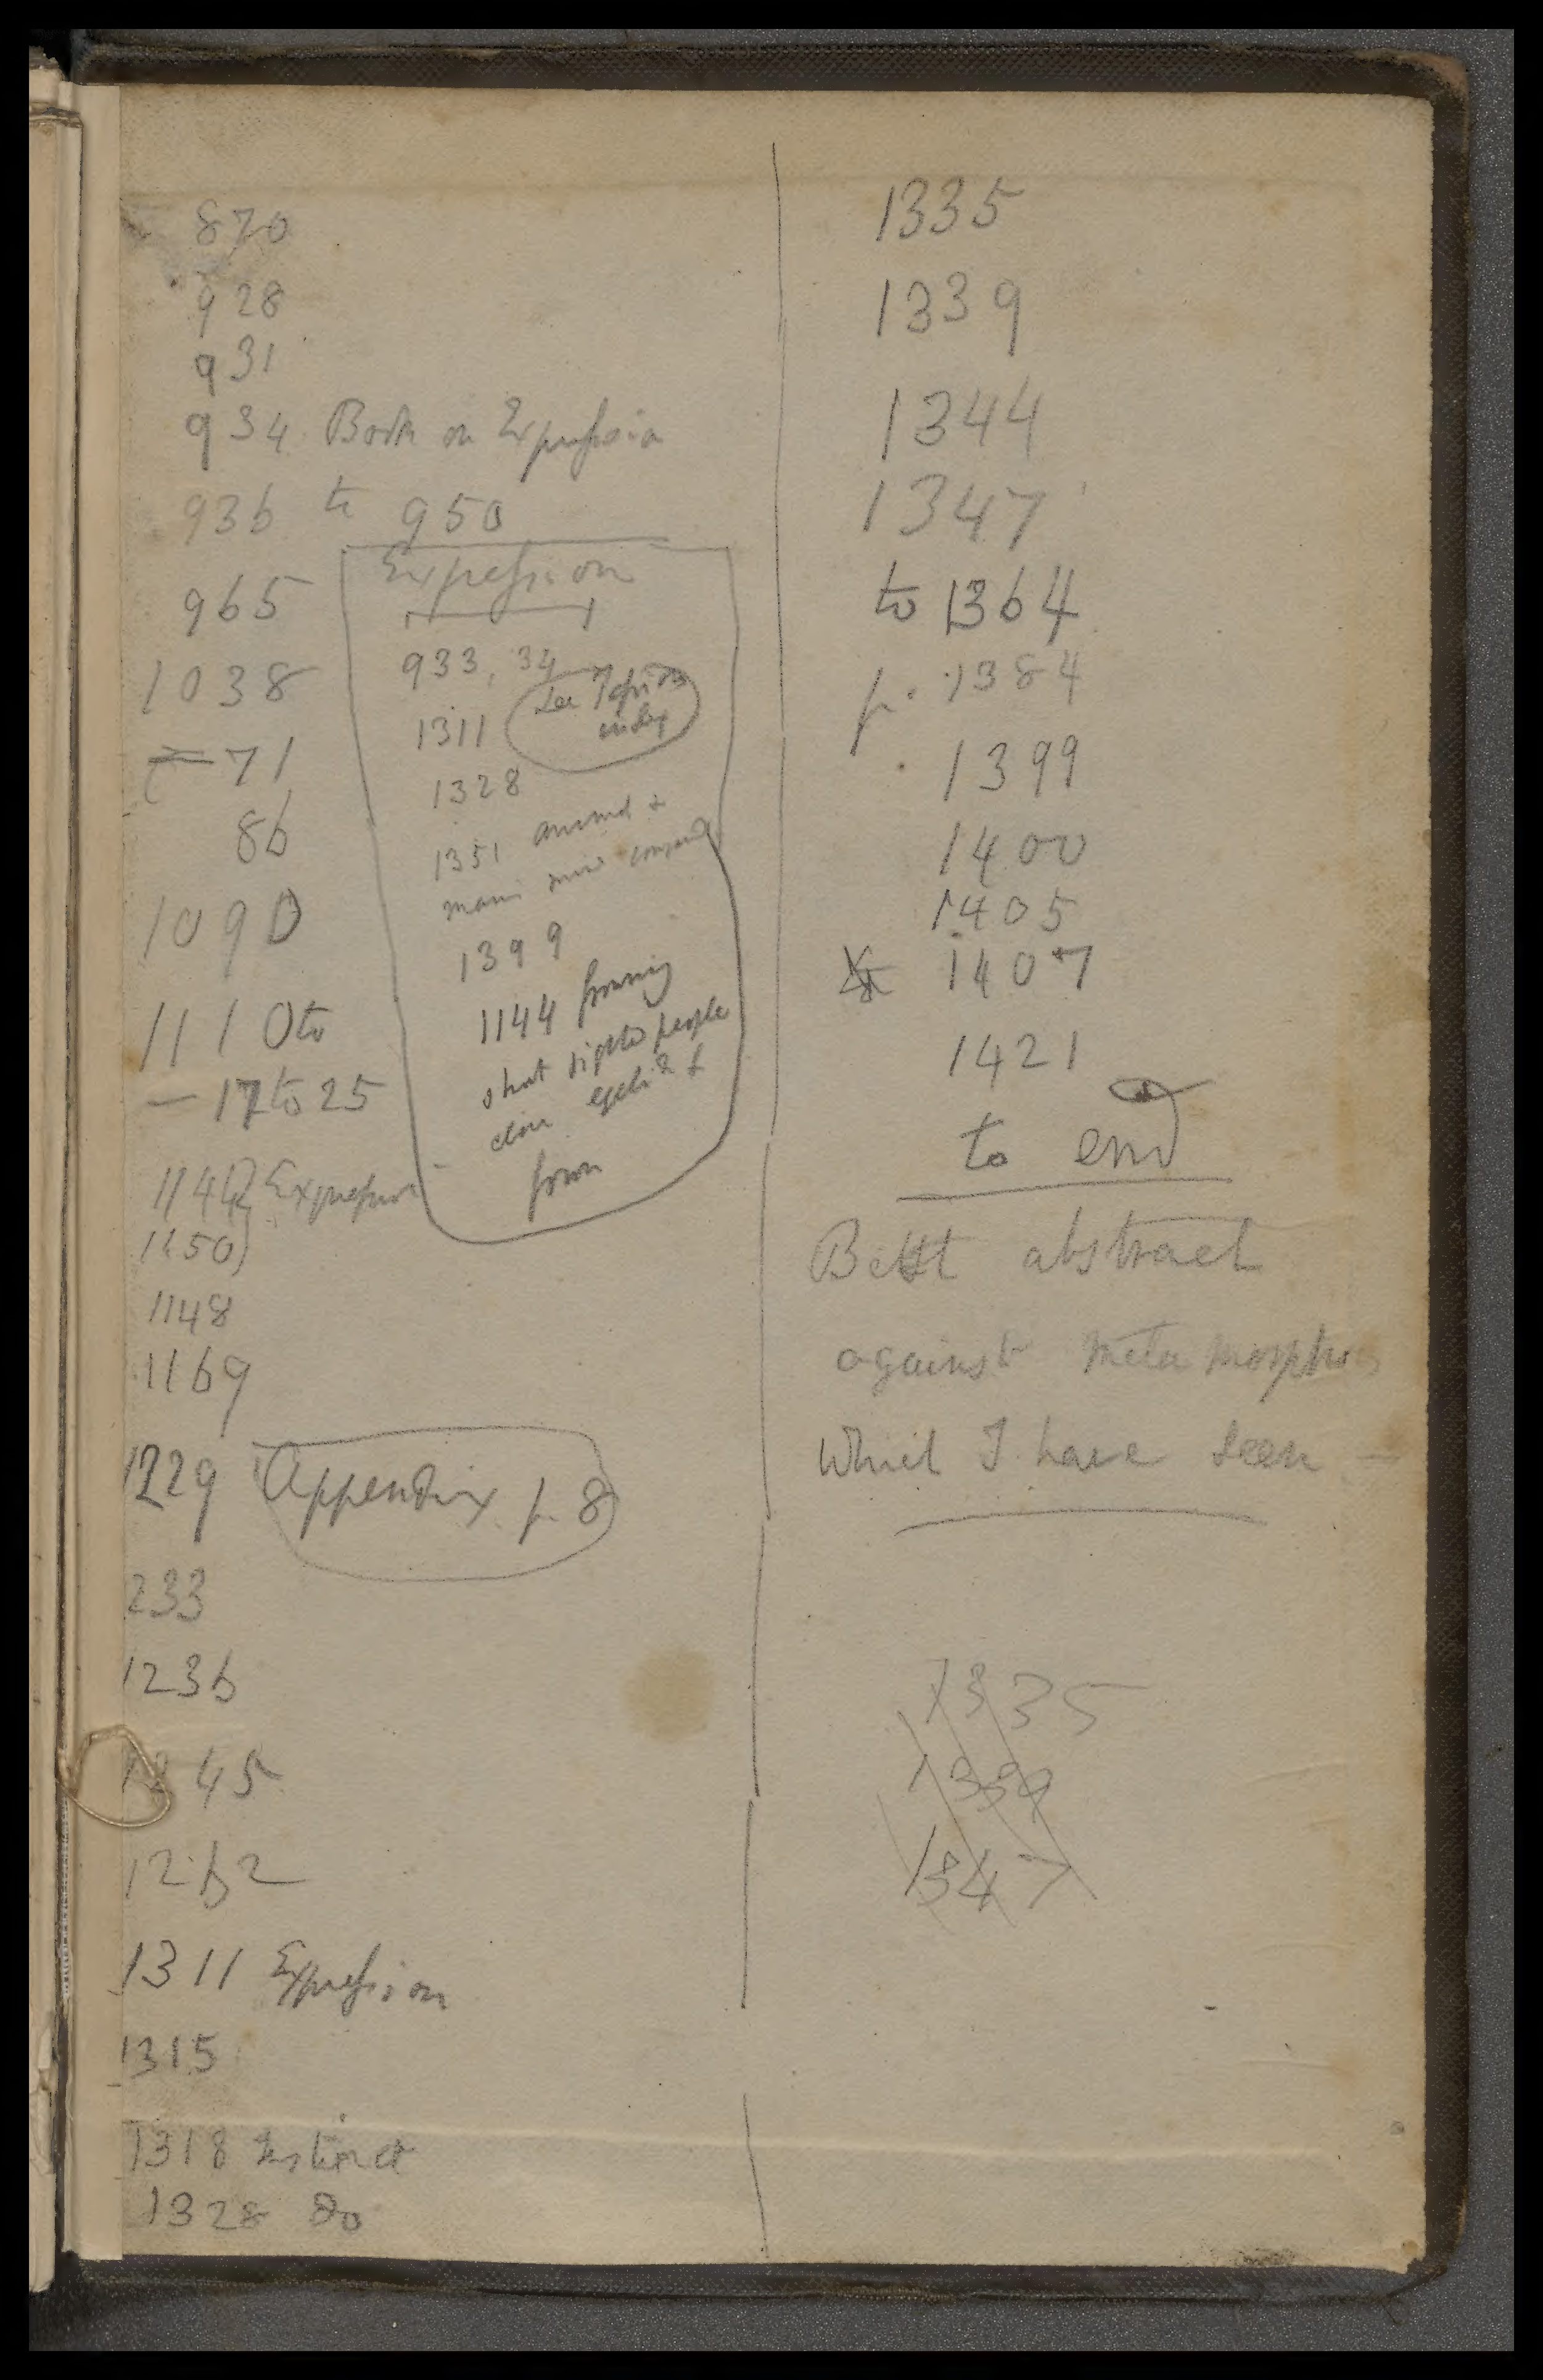 870
928
931
934 Book on Expression
936 to 950
965
1038
71
86
1090
1110 to
— 17 to 25
1144 Expression
1150
1148
1169
1229 Appendix p. 8
233
1236
1245
1262
1311 Expression
1315
1318 Instinct
1328 Do
Expression
933, 34
1311 See
index
1328
1351 animal &
mans mind compared
1399
1144 frowning
short sighted people
close eyelids &
frown
1335
1339
1344
1347
to 1364
p. 1384
1399
1400
1405
1407
1421
to end
Best abstract
against metamorphos
which I have seen —
1335
1339
1347